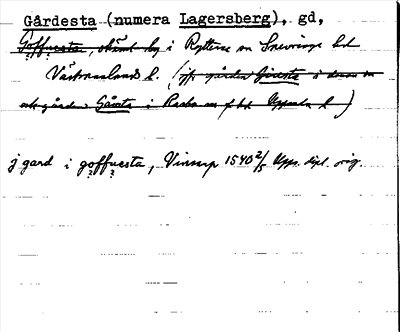 Gårdesta (numera Lagersberg), gd,
Goffuesta, okänt by i Rytterne sn Snevringe hd
Västmanland l. (jfr gården Gåvsta i denna sn
och gården Gåvsta i Rasbo sn f hd Uppsala l)
j gard i goffuesta, Vinsarp 1540 2/5 Upps. dipl. orig.